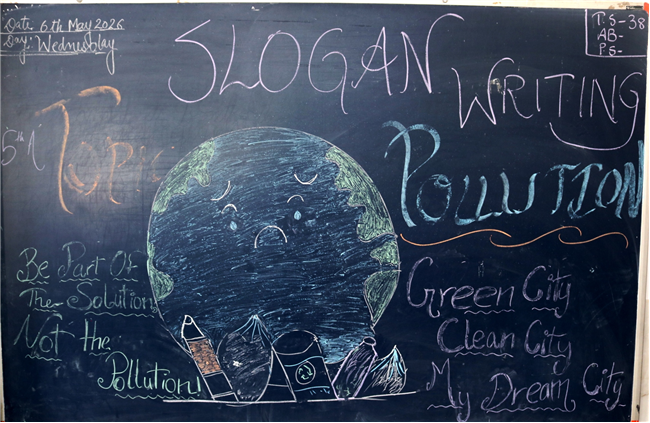 Date: 6th May 2026
Day: Wednesday
T.S-38
AB-
P.S-
SLOGAN
WRITING
Topic
POLLUTION
Be Part Of
The Solution
Not the
Pollution!
Green City
Clean City
My Dream City